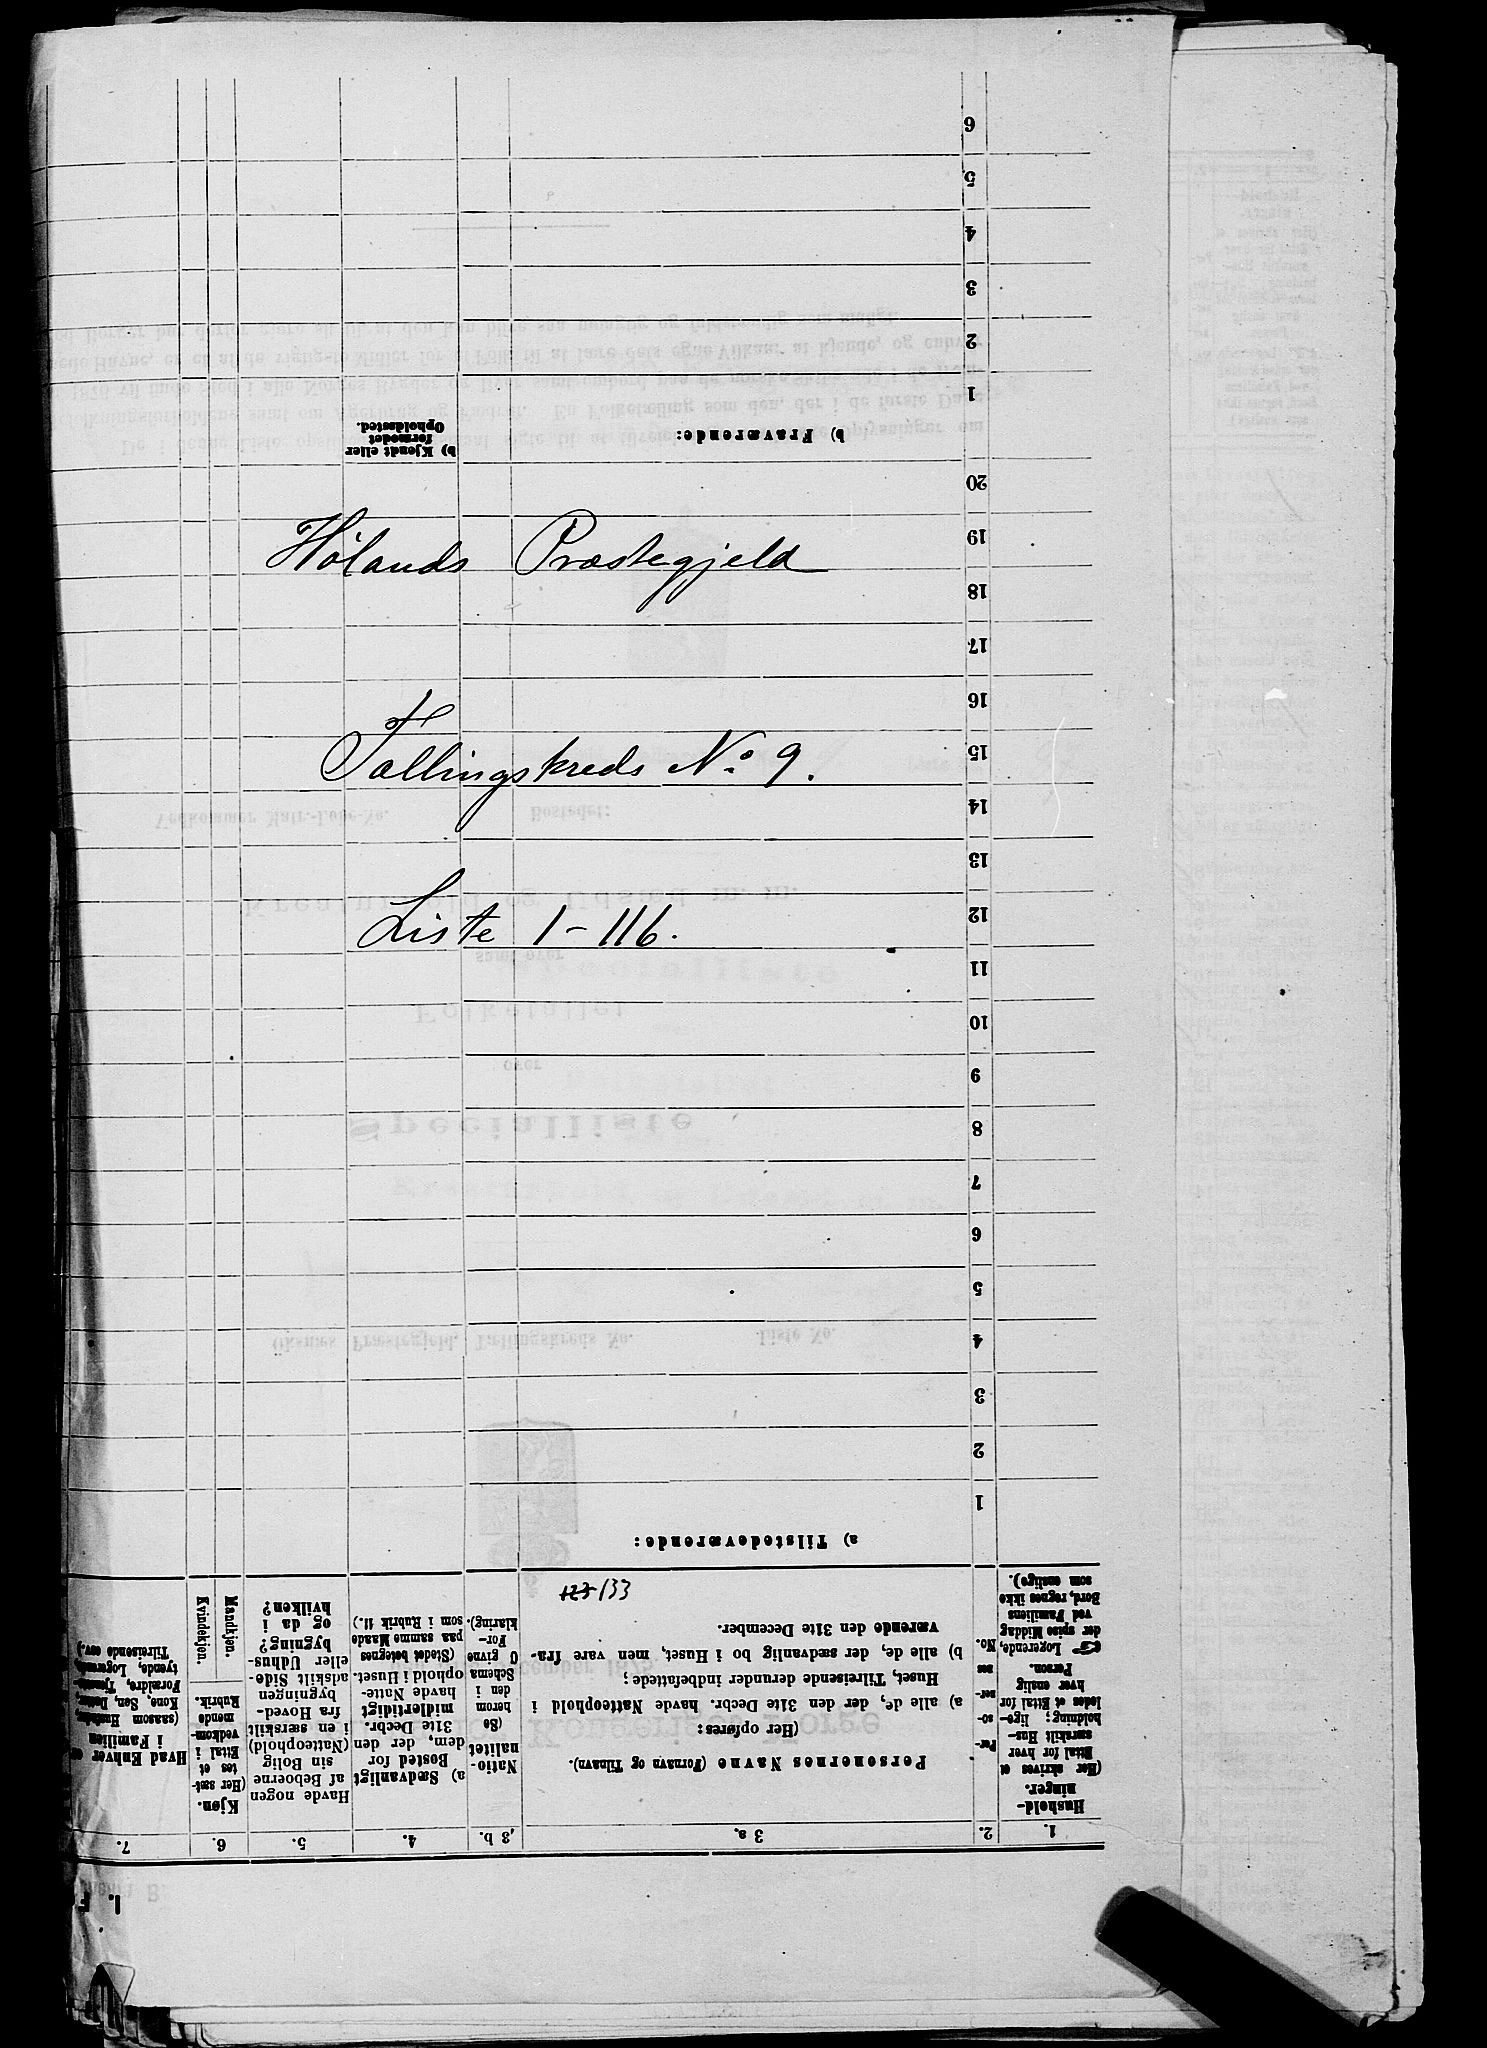 Hølands Præstegjeld
Tællingskreds No. 9.
Liste 1-116.
123 133
1.
2.
3 a.
3 b.
4.
5.
6.
7.
Husholdninger.
(Her skrives et Ettal for hver særskilt Husholdning; ligeledes et Ettal for hver enslig Person.
Logerende, der spise Middag ved Familiens Bord, regnes ikke som enslige).
Personernes No.
Personernes Navne (Fornavn og Tilnavn).
(Her opføres:
a) alle de, der den 31te Decbr. havde Natteophold i Huset, Tilreisende derunder indbefattede;
b) alle de, der sædvanlig bo i Huset, men vare fraværende den 31te December.
Nationalitet
(So herom den i Schema O givne Forklaring).
a) Sædvanligt Bosted for dem, der den 31te Decbr. midlertidigt havde Natteophold i Huset.
(Stedet betegnes paa samme Maade som i Rubrik 11.)
Havde nogen af Beboerne sin Bolig (Natteophold) i en særskilt fra Hovedbygningen adskilt Side- eller Udhusbygning? og da i hvilken?
Kjøn.
(Her sættes et Ettal i vedkommende Rubrik.
Mandkjøn.
Kvindekjøn.
Hvad Enhver er i Familien
(saasom Husfader, Kone, Søn, Datter, Forældre, Tjenestetyende, Logerende, Tilreisende osv.)
a) Tilstedeværende:
1
2
3
4
5
6
7
8
9
10
11
12
13
14
15
16
17
18
19
20
b) Fraværende:
b) Kjendt eller formodet Opholdssted.
1
2
3
4
5
6